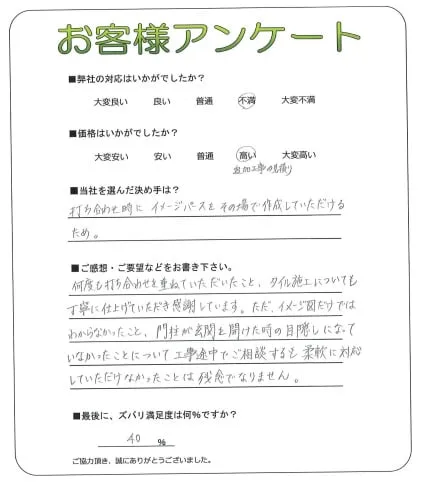 お客様アンケート
■弊社の対応はいかがでしたか？
大変良い 良い 普通 不満 大変不満
■価格はいかがでしたか？
大変安い 安い 普通 高い 大変高い
追加工事の見積り
■当社を選んだ決め手は？
打ち合わせ時に イメージパースを その場で作成していただける
ため。
■ご感想・ご要望などをお書き下さい。
何度も打ち合わせを重ねていただいたこと、タイル施工についても
丁寧に仕上げていただき感謝しています。ただ、イメージ図だけでは
わからなかったこと、門柱が玄関を開けた時の目隠しになって
いなかったことについて工事途中でご相談するも柔軟に対応
していただけなかったことは残念でなりません。
■最後に、ズバリ満足度は何％ですか？
40 ％
ご協力頂き、誠にありがとうございました。